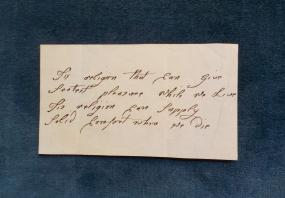 Tis religion that Can Give
Sweetest pleasure while we Live
Tis religion Can Supply
Solid Comfort when we die